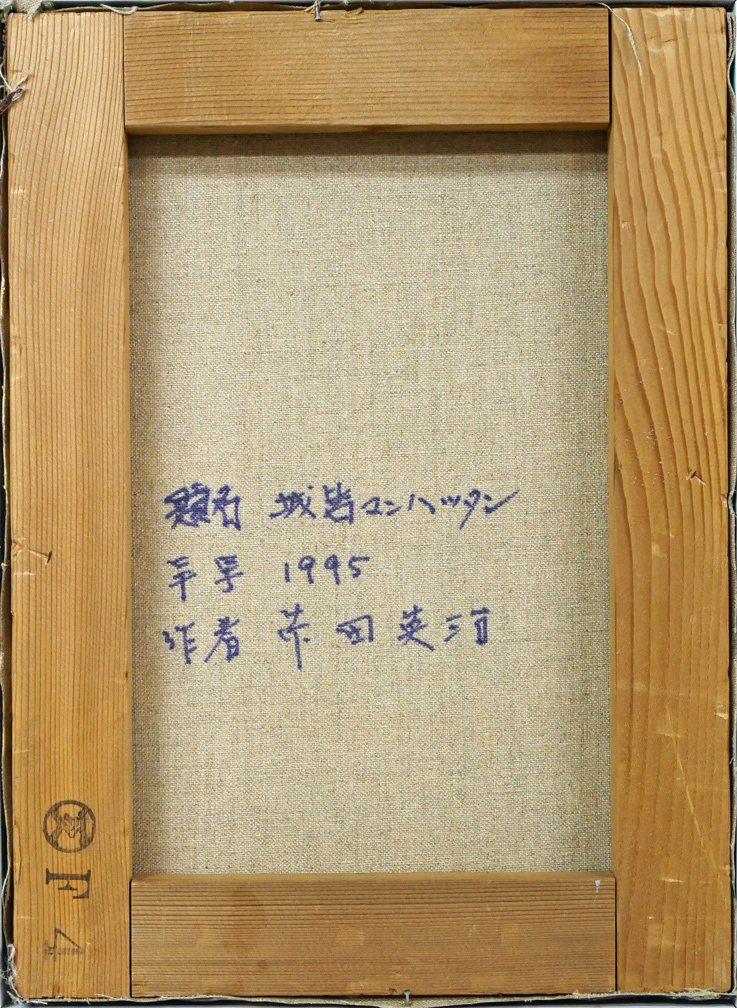 題名 城岩マンハッタン
年号 1995
作者 英河
F4